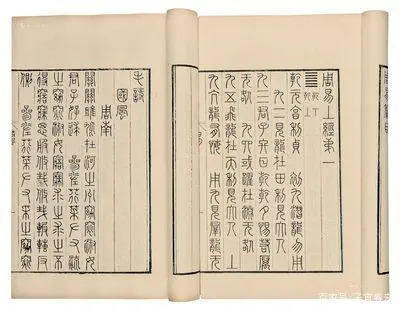 周易上經第一
乾下
乾上
乾元亨利貞 初九潛龍勿用
九二見龍在田利見大人
九三君子終日乾乾夕惕若厲
无咎 九四或躍在淵无咎
九五飛龍在天利見大人 上
九亢龍有悔 用九見群龍无
毛詩
國風
周南
關關雎鳩在河之州窈窕淑女
君子好逑 參差荇菜左右流
之窈窕淑女寤寐求之求之不
得寤寐思服悠哉悠哉輾轉反
側 參差荇菜左右采之窈窕